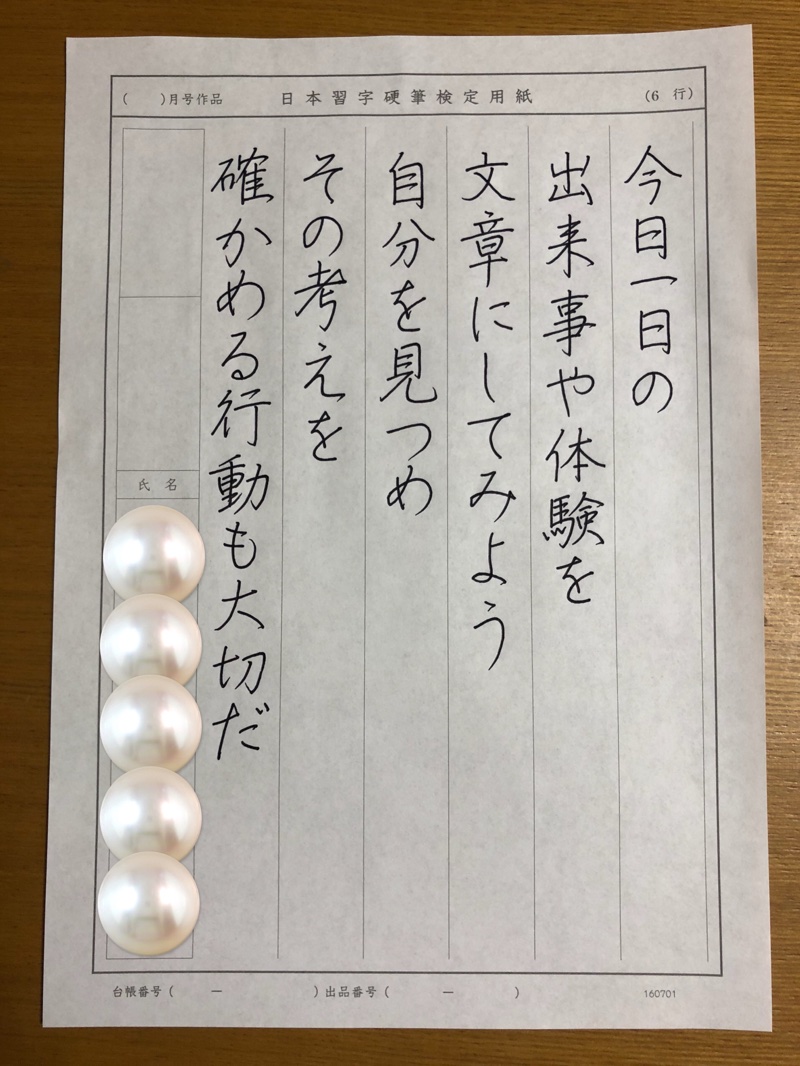 (　　)月号作品　日本習字硬筆検定用紙　(6 行)
今日一日の
出来事や体験を
文章にしてみよう
自分を見つめ
その考えを
確かめる行動も大切だ
氏名
台帳番号(　　ー　　)出品番号(　　ー　　)　160701